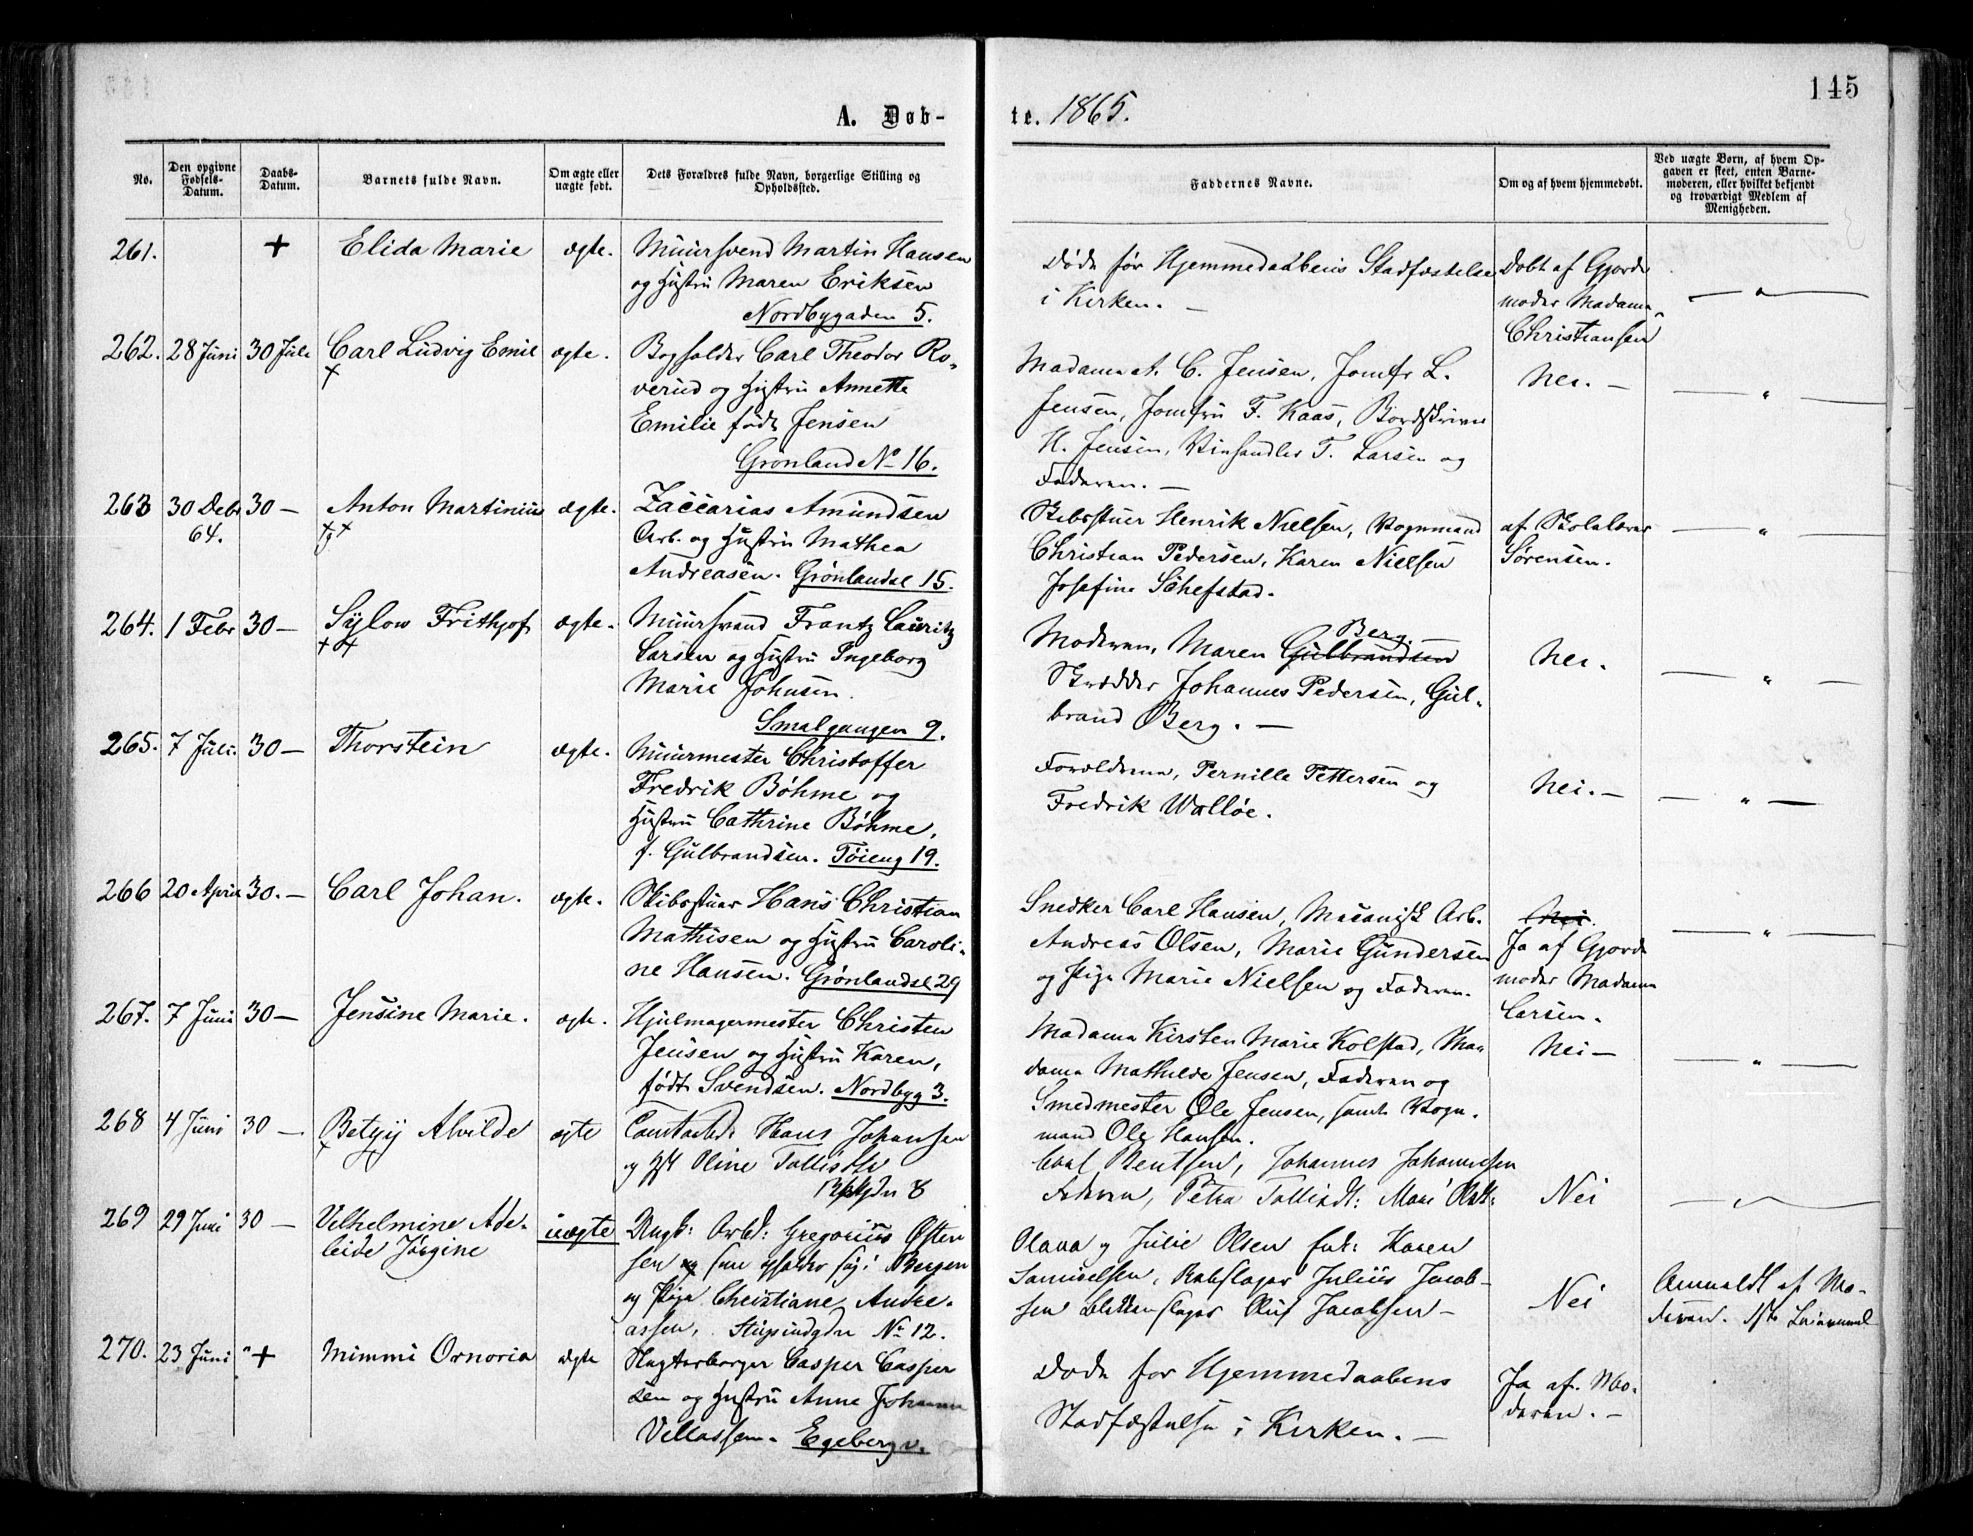 145
A. Døb-
te. 1865.
No.
Den opgivne Fødsels-Datum.
Daabs-Datum.
Barnets fulde Navn.
Om ægte eller uægte født.
Dets Forældres fulde Navn, borgerlige Stilling og Opholdssted.
Faddernes Navne.
Om og af hvem hjemmedøbt.
Ved uægte Børn, af hvem Op-
gaven er skeet, enten Barne-
moderen, eller hvilket bekjendt
og troværdigt Medlem af
Menigheden.
261. + Elida Marie ægte.
Muursvend Martin Hansen
og Hustru Maren Eriksen
Nordbygaden 5.
Døde før Hjemmedaabens Stadfæstelse
i Kirken. —
Døbt af Gjorde
moder Madame
Christiansen
262. 28 Juni 30 Juli Carl Ludvig Emil ægte.
Bogholder Carl Theodor Ro-
verud og Hustru Annette
Emilie født Jensen
Grønland No 16.
Madame A. C. Jensen, Jomfr L.
Jensen, Jomfru F. Kaas, Bordskriver
H. Jensen, Vinhandler T. Larsen og
Faderen. —
Nei. —
263 30 Debr 64. 30 — Anton Martinius ægte.
Zaccarias Amundsen
Arb. og Hustru Mathea
Andreasen. Grønlandsl 15.
Skibstuer Henrik Nielsen, Vognmand
Christian Pedersen, Karen Nielsen
Josefine Schefstad.
af Skolelærer
Sørensen.
264. 1 Febr 30 — Sylow Frithjof ægte.
Muursvend Frantz Lauritz
Larsen og Hustru Ingeborg
Marie Johnsen.
Smalgangen 9.
Moderen, Maren Gulbrandsen Berg.
Skrædder Johannes Pedersen, Gul-
brand Berg. —
Nei.
265. 7 Juli. 30 — Thorstein ægte.
Muurmester Christoffer
Fredrik Bøhme og
Hustru Cathrine Bøhme,
f. Gulbrandsen. Tøieng 19.
Forældrene, Pernille Pettersen og
Fredrik Walløe.
Nei. —
266 20 April 30. — Carl Johan. ægte.
Skibstuer Hans Christian
Mathisen og Hustru Caroli-
ne Hansen. Grønlandsl 29
Snedker Carl Hansen, Mecanisk Arb.
Andreas Olsen, Marie Gundersen
og Pige Marie Nielsen og Faderen.
Nei.
Ja af Gjorde
moder Madame
Larsen.
267. 7 Juni 30 — Jensine Marie. ægte.
Hjulmagermester Christen
Jensen og Hustru Karen,
født Svendsen. Nordbyg 3.
Madame Kirsten Marie Kolstad, Ma-
dame Mathilde Jensen, Faderen og
Smedmester Ole Jensen, samt Vogn-
mand Ole Hansen.
Nei —
268 4 Juni 30 — Betzy Alvilde ægte
Hans Johansen
og Hst Oline
8
Bentsen, Johannes Johannesen
Faderen, Petra
Nei
269 29 Juni 30 — Vilhelmine Ade-
leide Jørgine uægte
Ungk: Arbd: Gregorius Osten
sen som opholder sig i Bergen
og Pige Christiane Andre-
assen, No 12.
Olava og Julie Olsen Enk: Karen
Samuelsen, Rebslager Julius Jacob-
sen Blikkenslager Oluf Jacobsen —
Nei
Anmeldt af Mo-
deren. 1ste Leiermaal
270. 23 Juni " + Mimmi Ornoria ægte
Casper Casper
sen og Hustru Anne Johanne
Vellassen. Egebergv.
Døde før Hjemmedaabens
Stadfæstelse i Kirken. —
Ja af Mo-
deren. —